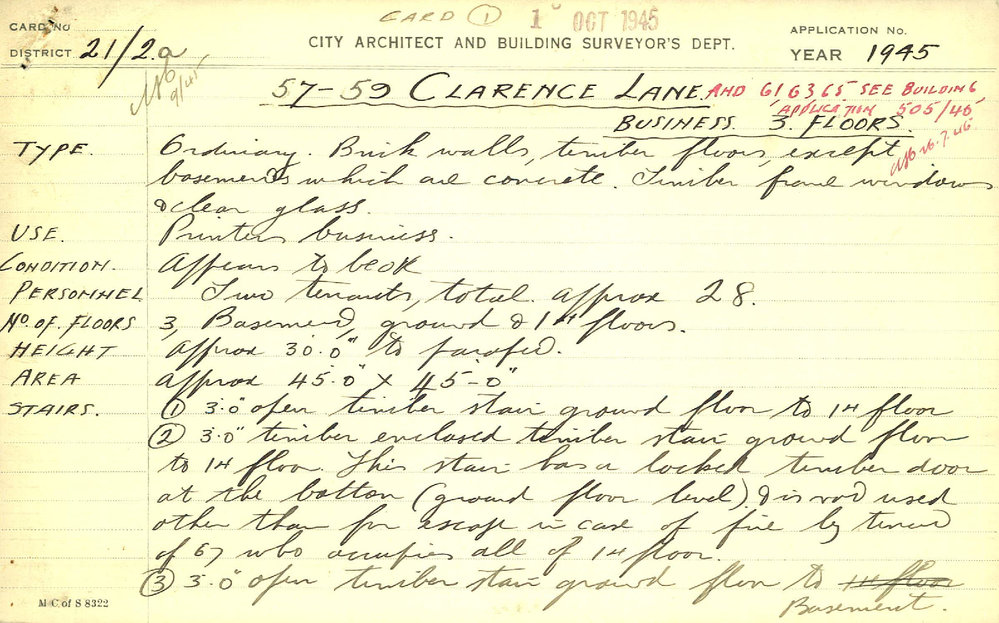 CARD ① 1 OCT 1945
CARD No
DISTRICT 21/2a
9/45
CITY ARCHITECT AND BUILDING SURVEYOR'S DEPT.
APPLICATION No.
YEAR 1945
57-59 CLARENCE LANE. AND 61 63 65 SEE BUILDING
APPLICATION 505/46
BUSINESS 3. FLOORS.
26.7.46
TYPE. Ordinary. Brick walls, timber floors, except
basements which are concrete. Timber frame windows
& clear glass.
USE. Printers business.
CONDITION. Appears to be OK
PERSONNEL Two tenants, total approx 28.
No. OF. FLOORS 3, Basement, ground & 1st floors.
HEIGHT approx 30.0" to parapet.
AREA approx 45.0" x 45-0"
STAIRS. ① 3.0" open timber stair ground floor to 1st floor
② 3.0" timber enclosed timber stair ground floor
to 1st floor. This stair has a locked timber door
at the bottom (ground floor level) & is not used
other than for escape in case of fire by tenant
of 57 who occupies all of 1st floor.
③ 3.0" open timber stair ground floor to 1st floor
Basement.
M C of S 8322